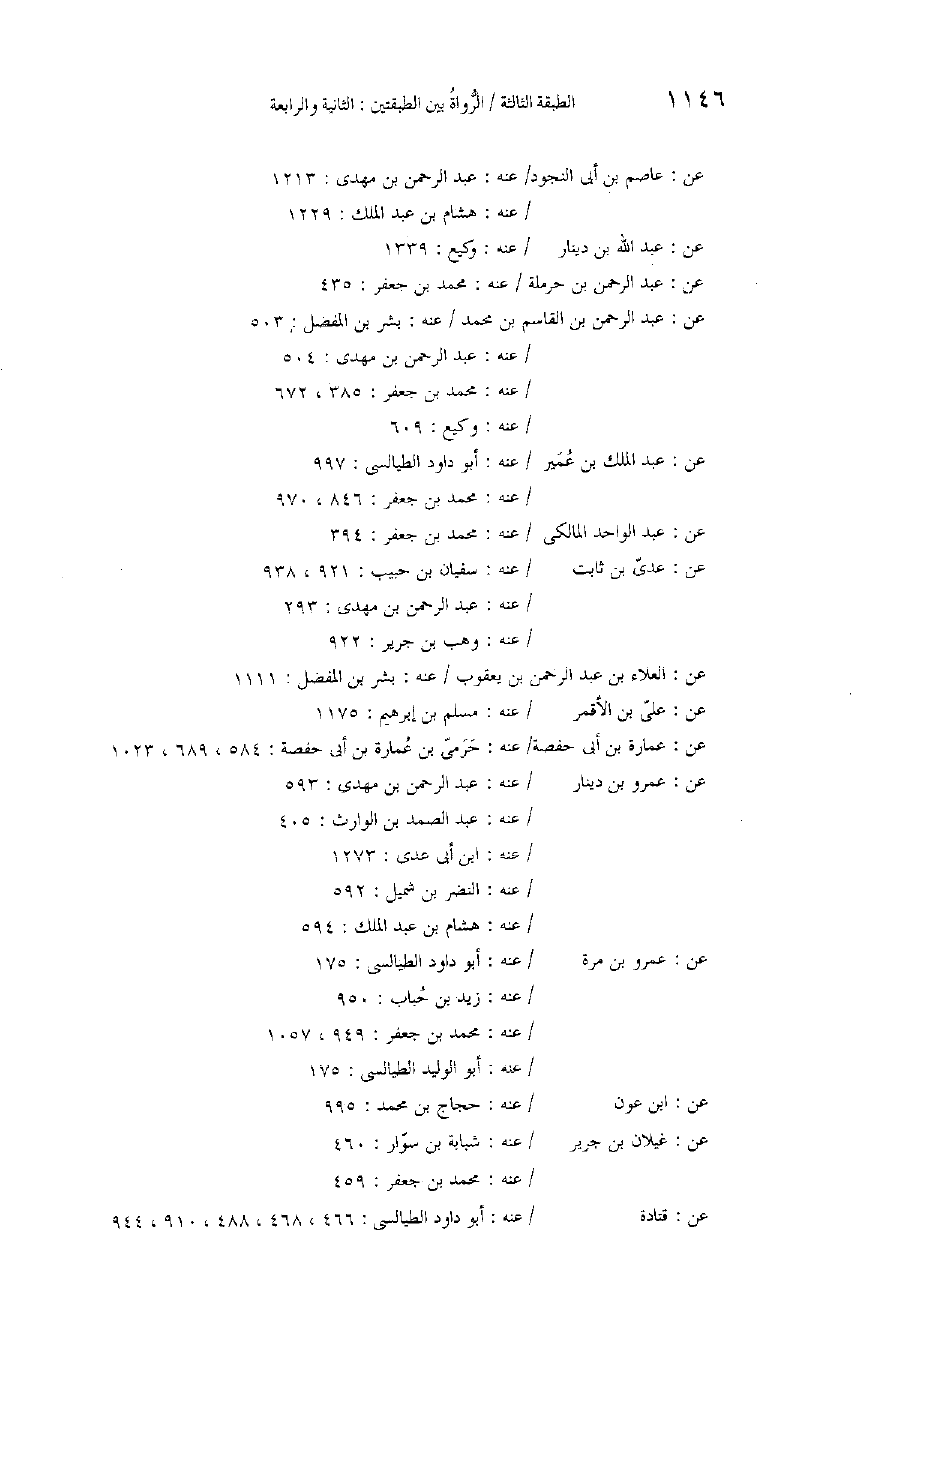 ١١٤٦ الطبقة الثالثة / الرُّواةُ بين الطبقتين : الثانية والرابعة
عن : عاصم بن أبى النجود/ عنه : عبد الرحمن بن مهدى : ١٢١٣
/ عنه : هشام بن عبد الملك : ١٢٢٩
عن : عبد الله بن دينار / عنه : وكيع : ١٣٣٩
عن : عبد الرحمن بن حرملة / عنه : محمد بن جعفر : ٤٣٥
عن : عبد الرحمن بن القاسم بن محمد / عنه : بشر بن المفضل : ٥٠٣
/ عنه : عبد الرحمن بن مهدى : ٥٠٤
/ عنه : محمد بن جعفر : ٣٨٥ ، ٦٧٢
/ عنه : وكيع : ٦٠٩
عن : عبد الملك بن عُمَير / عنه : أبو داود الطيالسى : ٩٩٧
/ عنه : محمد بن جعفر : ٨٤٦ ، ٩٧٠
عن : عبد الواحد المالكى / عنه : محمد بن جعفر : ٣٩٤
عن : عدىّ بن ثابت / عنه : سفيان بن حبيب : ٩٢١ ، ٩٣٨
/ عنه : عبد الرحمن بن مهدى : ٢٩٣
/ عنه : وهب بن جرير : ٩٢٢
عن : العلاء بن عبد الرحمن بن يعقوب / عنه : بشر بن المفضل : ١١١١
عن : علىّ بن الأقمر / عنه : مسلم بن إبرهيم : ١١٧٥
عن : عمارة بن أبى حفصة/ عنه : حَرَمىّ بن عُمارة بن أبى حفصة : ٥٨٤ ، ٦٨٩ ، ١٠٢٣
عن : عمرو بن دينار / عنه : عبد الرحمن بن مهدى : ٥٩٣
/ عنه : عبد الصمد بن الوارث : ٤٠٥
/ عنه : ابن أبى عدى : ١٢٧٣
/ عنه : النضر بن شميل : ٥٩٢
/ عنه : هشام بن عبد الملك : ٥٩٤
عن : عمرو بن مرة / عنه : أبو داود الطيالسى : ١٧٥
/ عنه : زيد بن حُباب : ٩٥٠
/ عنه : محمد بن جعفر : ٩٤٩ ، ١٠٥٧
/ عنه : أبو الوليد الطيالسى : ١٧٥
عن : ابن عون / عنه : حجاج بن محمد : ٩٩٥
عن : غيلان بن جرير / عنه : شبابة بن سوّار : ٤٦٠
/ عنه : محمد بن جعفر : ٤٥٩
عن : قتادة / عنه : أبو داود الطيالسى : ٤٦٦ ، ٤٦٨ ، ٤٨٨ ، ٩١٠ ، ٩٤٤